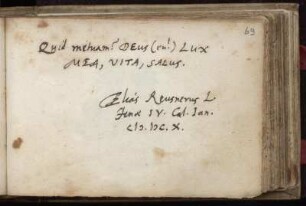 69
Quid metuam? DEUS (en!) LUX
MEA, VITA, SALUS.
Elias Reusnerus L
Jenæ IV. Cal. Jan.
cIↃ. IↃC. X.